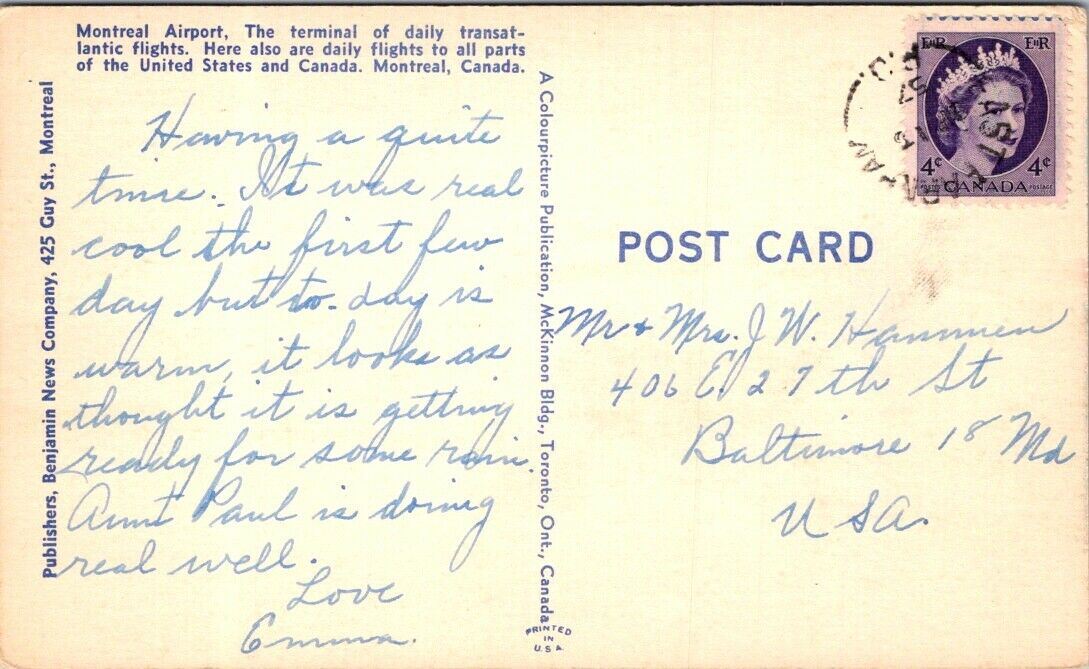 Montreal Airport, The terminal of daily transat-
lantic flights. Here also are daily flights to all parts
of the United States and Canada. Montreal, Canada.
Publishers, Benjamin News Company, 425 Guy St., Montreal
Having a quite
time. It was real
cool the first few
day but to-day is
warm, it looks as
thought it is getting
ready for some rain.
Aunt Paul is doing
real well.
Love
Emma.
A Colourpicture Publication, McKinnon Bldg., Toronto, Ont., Canada
PRINTED
IN
U.S.A.
EIIR EIIR
4¢ 4¢
POSTES CANADA POSTAGE
57
POST CARD
Mr & Mrs. J. W. Hammen
406 E. 27th St
Baltimore 18 Md
USA.